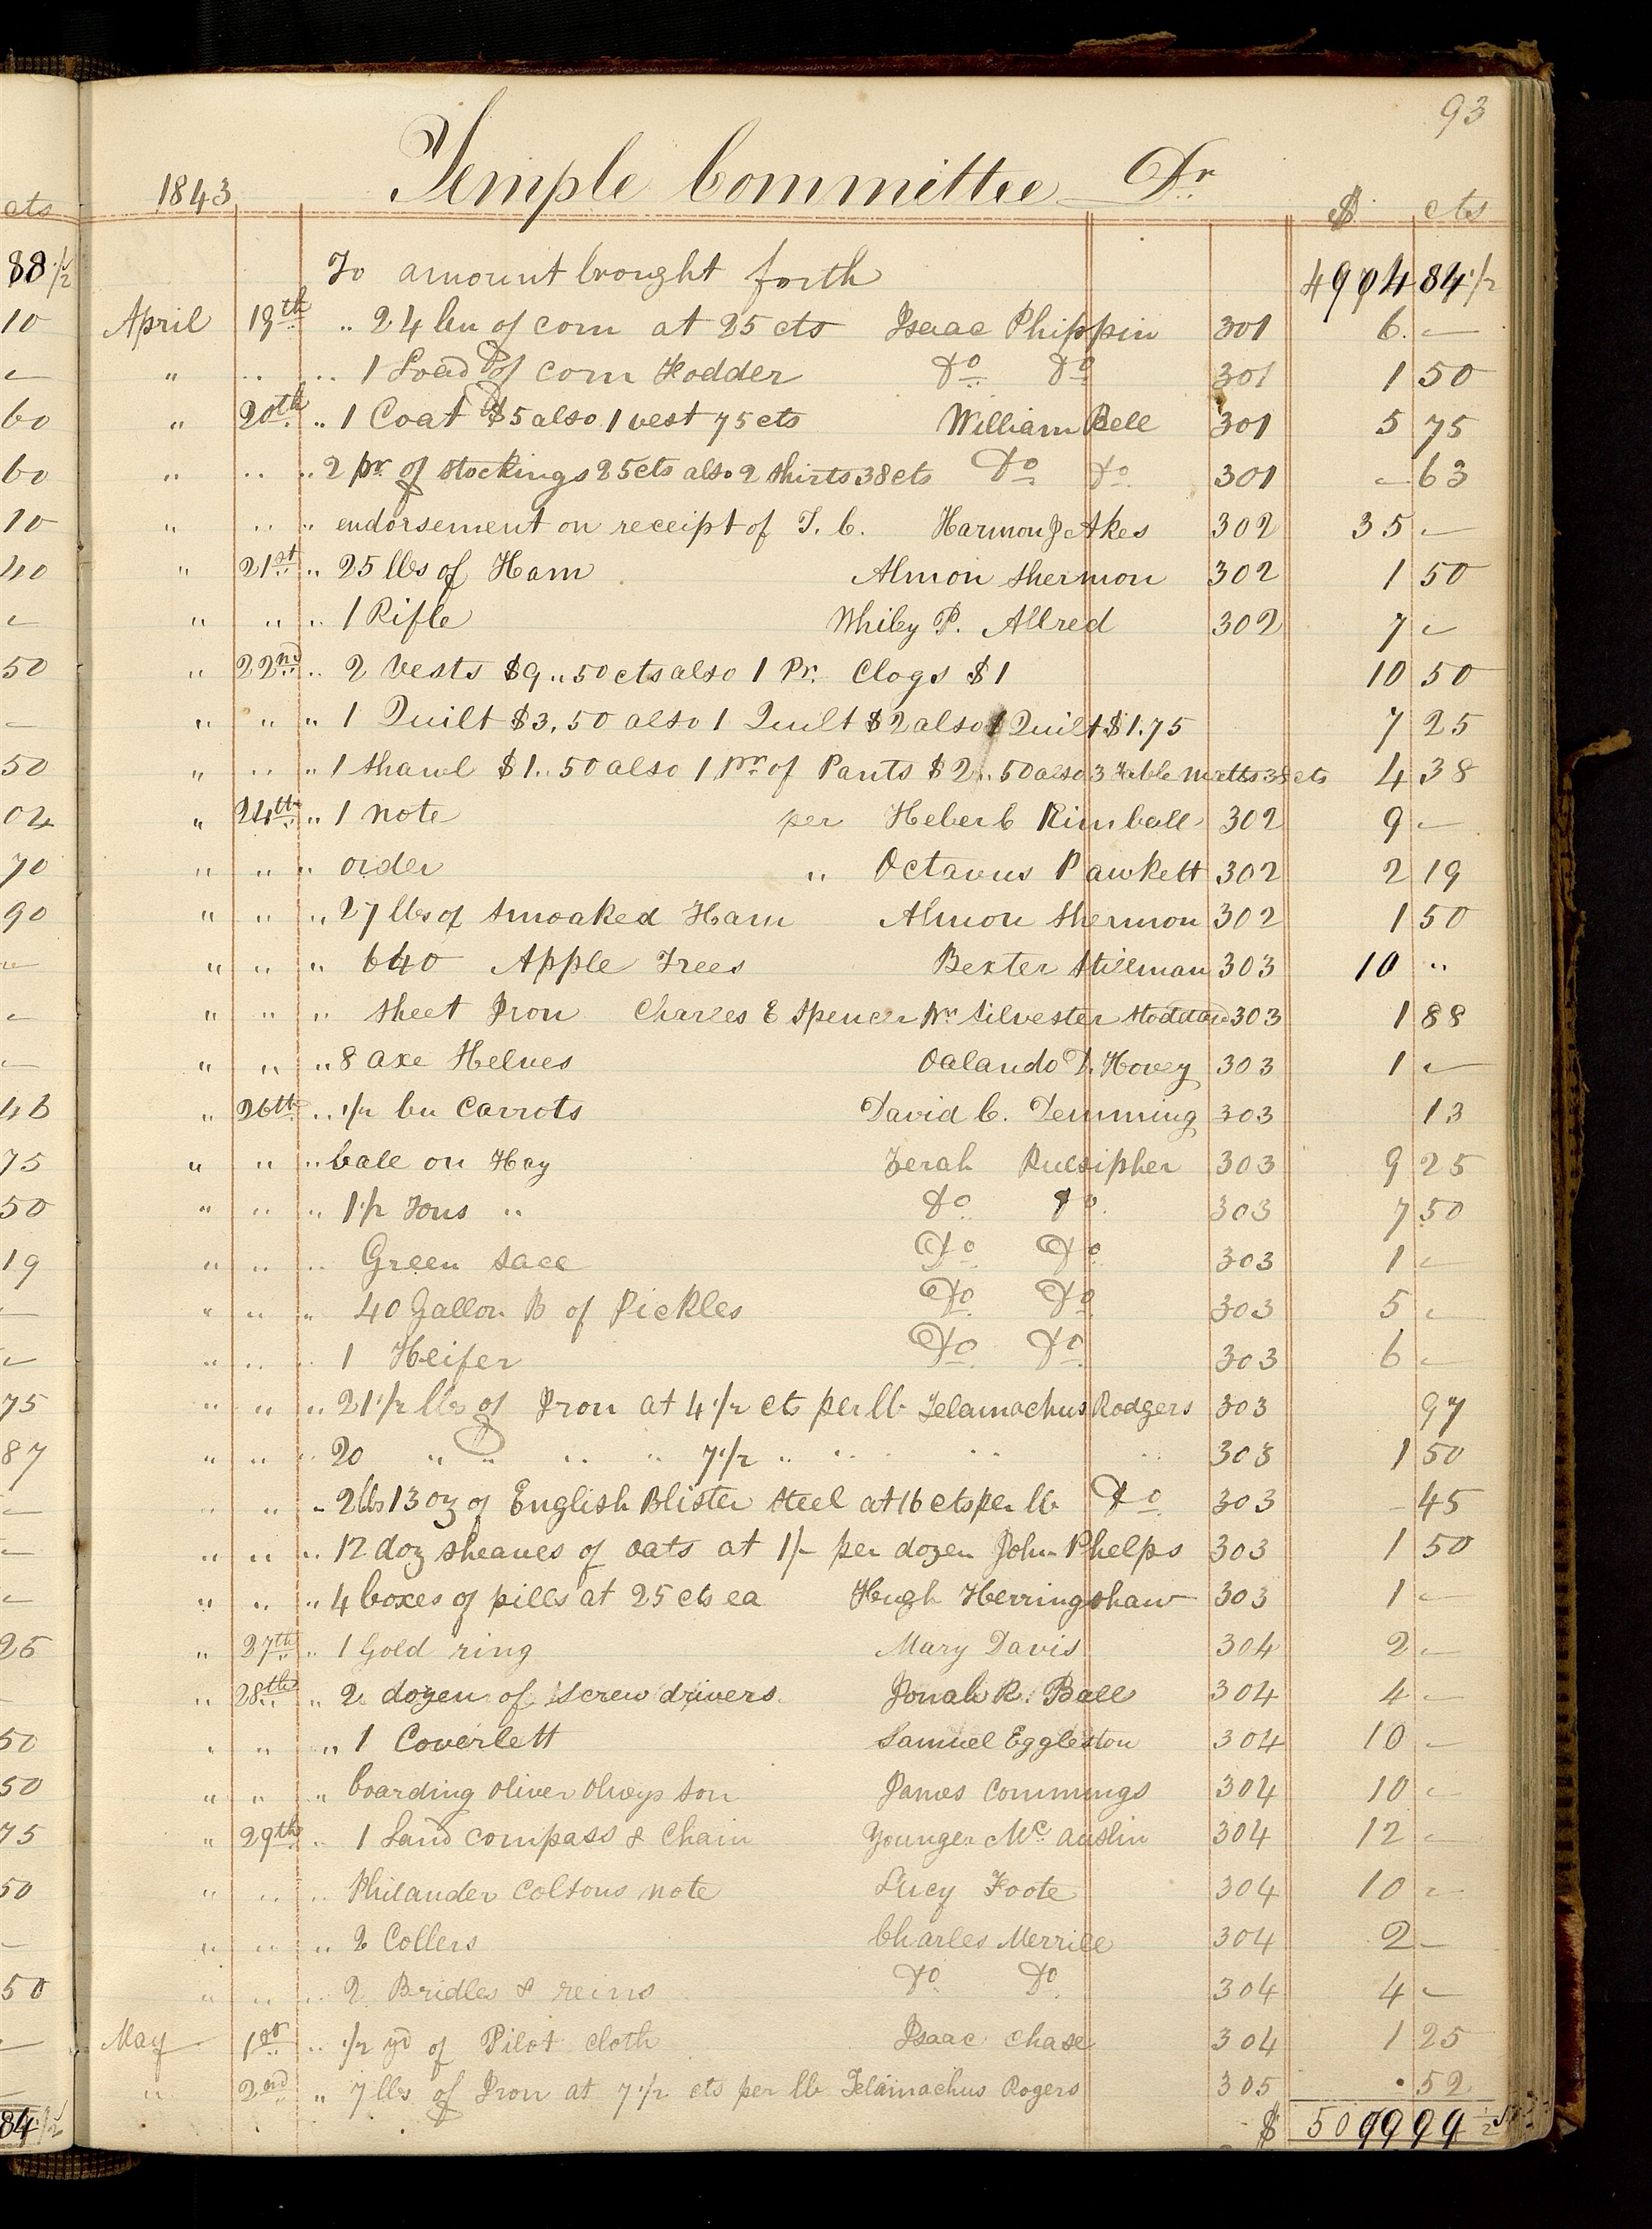 93
1843 Temple Committee Dr $ cts
To amount brought forth 4904 84 1/2
April 19th " 24 bu of corn at 25 cts Isaac Phippin 301 6. —
" " " 1 Load of corn Fodder Do Do 301 1 50
" 20th " 1 Coat $5 also 1 vest 75 cts William Bell 301 5 75
" " " 2 pr of stockings 25 cts also 2 shirts 38 cts Do Do 301 — 63
" " " endorsement on receipt of T. C. Harmon J Akes 302 35 —
" 21st " 25 lbs of Ham Almon Shermon 302 1 50
" " " 1 Rifle Whiley P. Allred 302 7 —
" 22nd " 2 Vests $9 " 50 cts also 1 Pr. Clogs $1 10 50
" " " 1 Quilt $3.50 also 1 Quilt $2 also 1 Quilt $1.75 7 25
" " " 1 Shawl $1..50 also 1 pr of Pants $2..50 also 3 Table Matts 38 cts 4 38
" 24th " 1 note per Heber C Kimball 302 9 —
" " " order " Octavus Pawkett 302 2 19
" " " 27 lbs of Smoaked Ham Almon Shermon 302 1 50
" " " 640 Apple Trees Bexter Stillman 303 10 "
" " " sheet Iron Charles E Spencer Silvester Stoddard 303 1 88
" " " 8 axe Helves Oalando D. Hovey 303 1 —
" 26th " 1/2 bu Carrots David C. Demming 303 13
" " " bale on Hay Zerah Pulsipher 303 9 25
" " " 1 1/2 Tons " Do Do 303 7 50
" " " Green Sace Do Do 303 1 —
" " " 40 Gallon B of Pickles Do Do 303 5 —
" " " 1 Heifer Do Do 303 6 —
" " " 21 1/2 lbs of Iron at 4 1/2 cts per lb Telamachus Rodgers 303 97
" " " 20 " " " " 7 1/2 " " " " 303 1 50
" " " 2 lbs 13 oz of English Blister Steel at 16 cts per lb Do 303 — 45
" " " 12 doz sheaves of oats at 1/- per dozen John Phelps 303 1 50
" " " 4 boxes of pills at 25 cts ea Hugh Herringshaw 303 1 —
" 27th " 1 Gold ring Mary Davis 304 2 —
" 28th " 2 dozen of screw drivers Jonah R. Ball 304 4 —
" " " 1 Coverlett Samuel Eggleston 304 10 —
" " " boarding Oliver Olneys son James Commings 304 10 —
" 29th " 1 Land compass & Chain Younger Mc Auslin 304 12 —
" " " Philander Colsons note Lucy Foote 304 10 —
" " " 2 Collers Charles Merrill 304 2 —
" " " 2 Bridles & reins Do Do 304 4 —
May 1st " 1/2 yd of Pilot cloth Isaac Chase 304 1 25
" 2nd " 7 lbs of Iron at 7 1/2 cts per lb Telamachus Rogers 305 . 52
$ 5099 99 1/2
cts
88 1/2
10
—
60
60
10
40
—
50
—
50
04
70
90
—
—
—
46
75
50
19
—
—
75
87
—
—
—
25
—
50
50
75
50
—
50
—
—
84 1/2